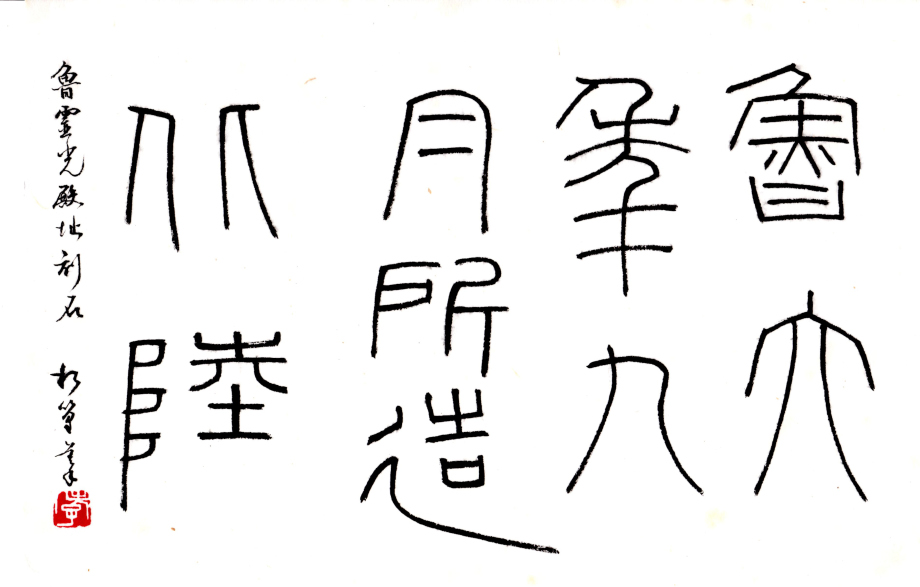 魯六
年九
月所造
北陸
魯靈光殿址刻石